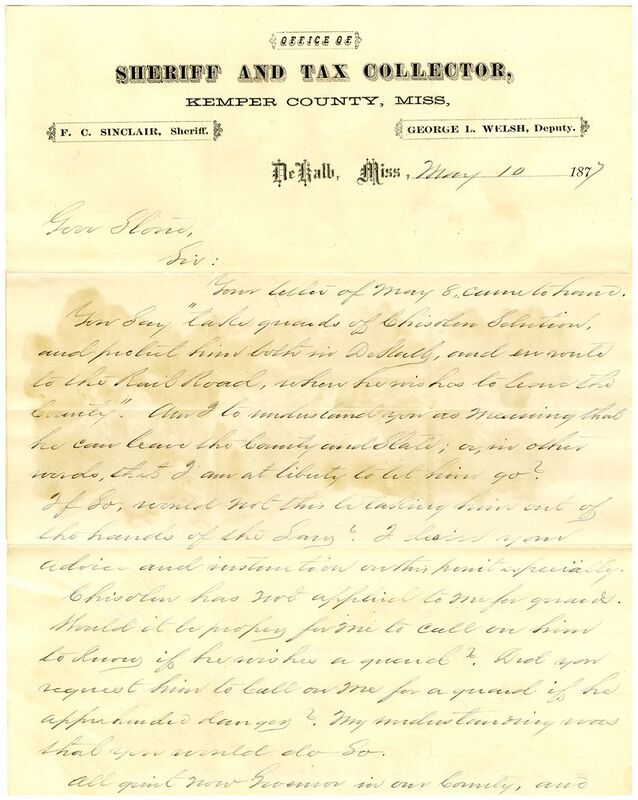 OFFICE OF
SHERIFF AND TAX COLLECTOR,
KEMPER COUNTY, MISS,
F. C. SINCLAIR, Sheriff.
GEORGE L. WELSH, Deputy.
DeKalb, Miss, May 10 1877
Gov Stone,
Sir:
Your letter of May 8, came to hand.
You Say "take guards of Chisolm Selection,
and protect him both in DeKalb, and en route
to the Rail Road, when he wishes to leave the
County". Am I to understand you as Meaning that
he can leave the County and State; or, in other
words, that I am at liberty to let him go?
If So, would not this be taking him out of
the hands of the Law? I desire your
advice and instruction on this point especially.
Chisolm has not applied to Me for guards.
Would it be proper for Me to call on him
to Know if he wishes a guard? Did you
request him to Call on Me for a guard if he
apprehended danger? My understanding was
that you would do So.
All quiet now Governor in our County, and